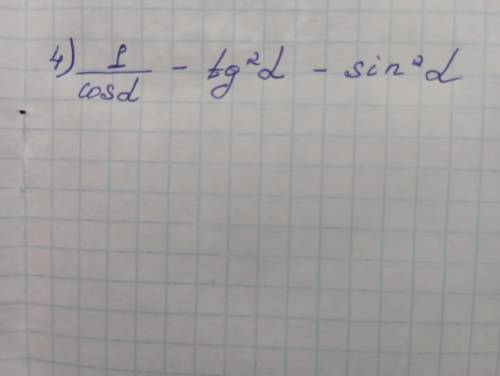 4) 1/cosα - tg²α - sin²α